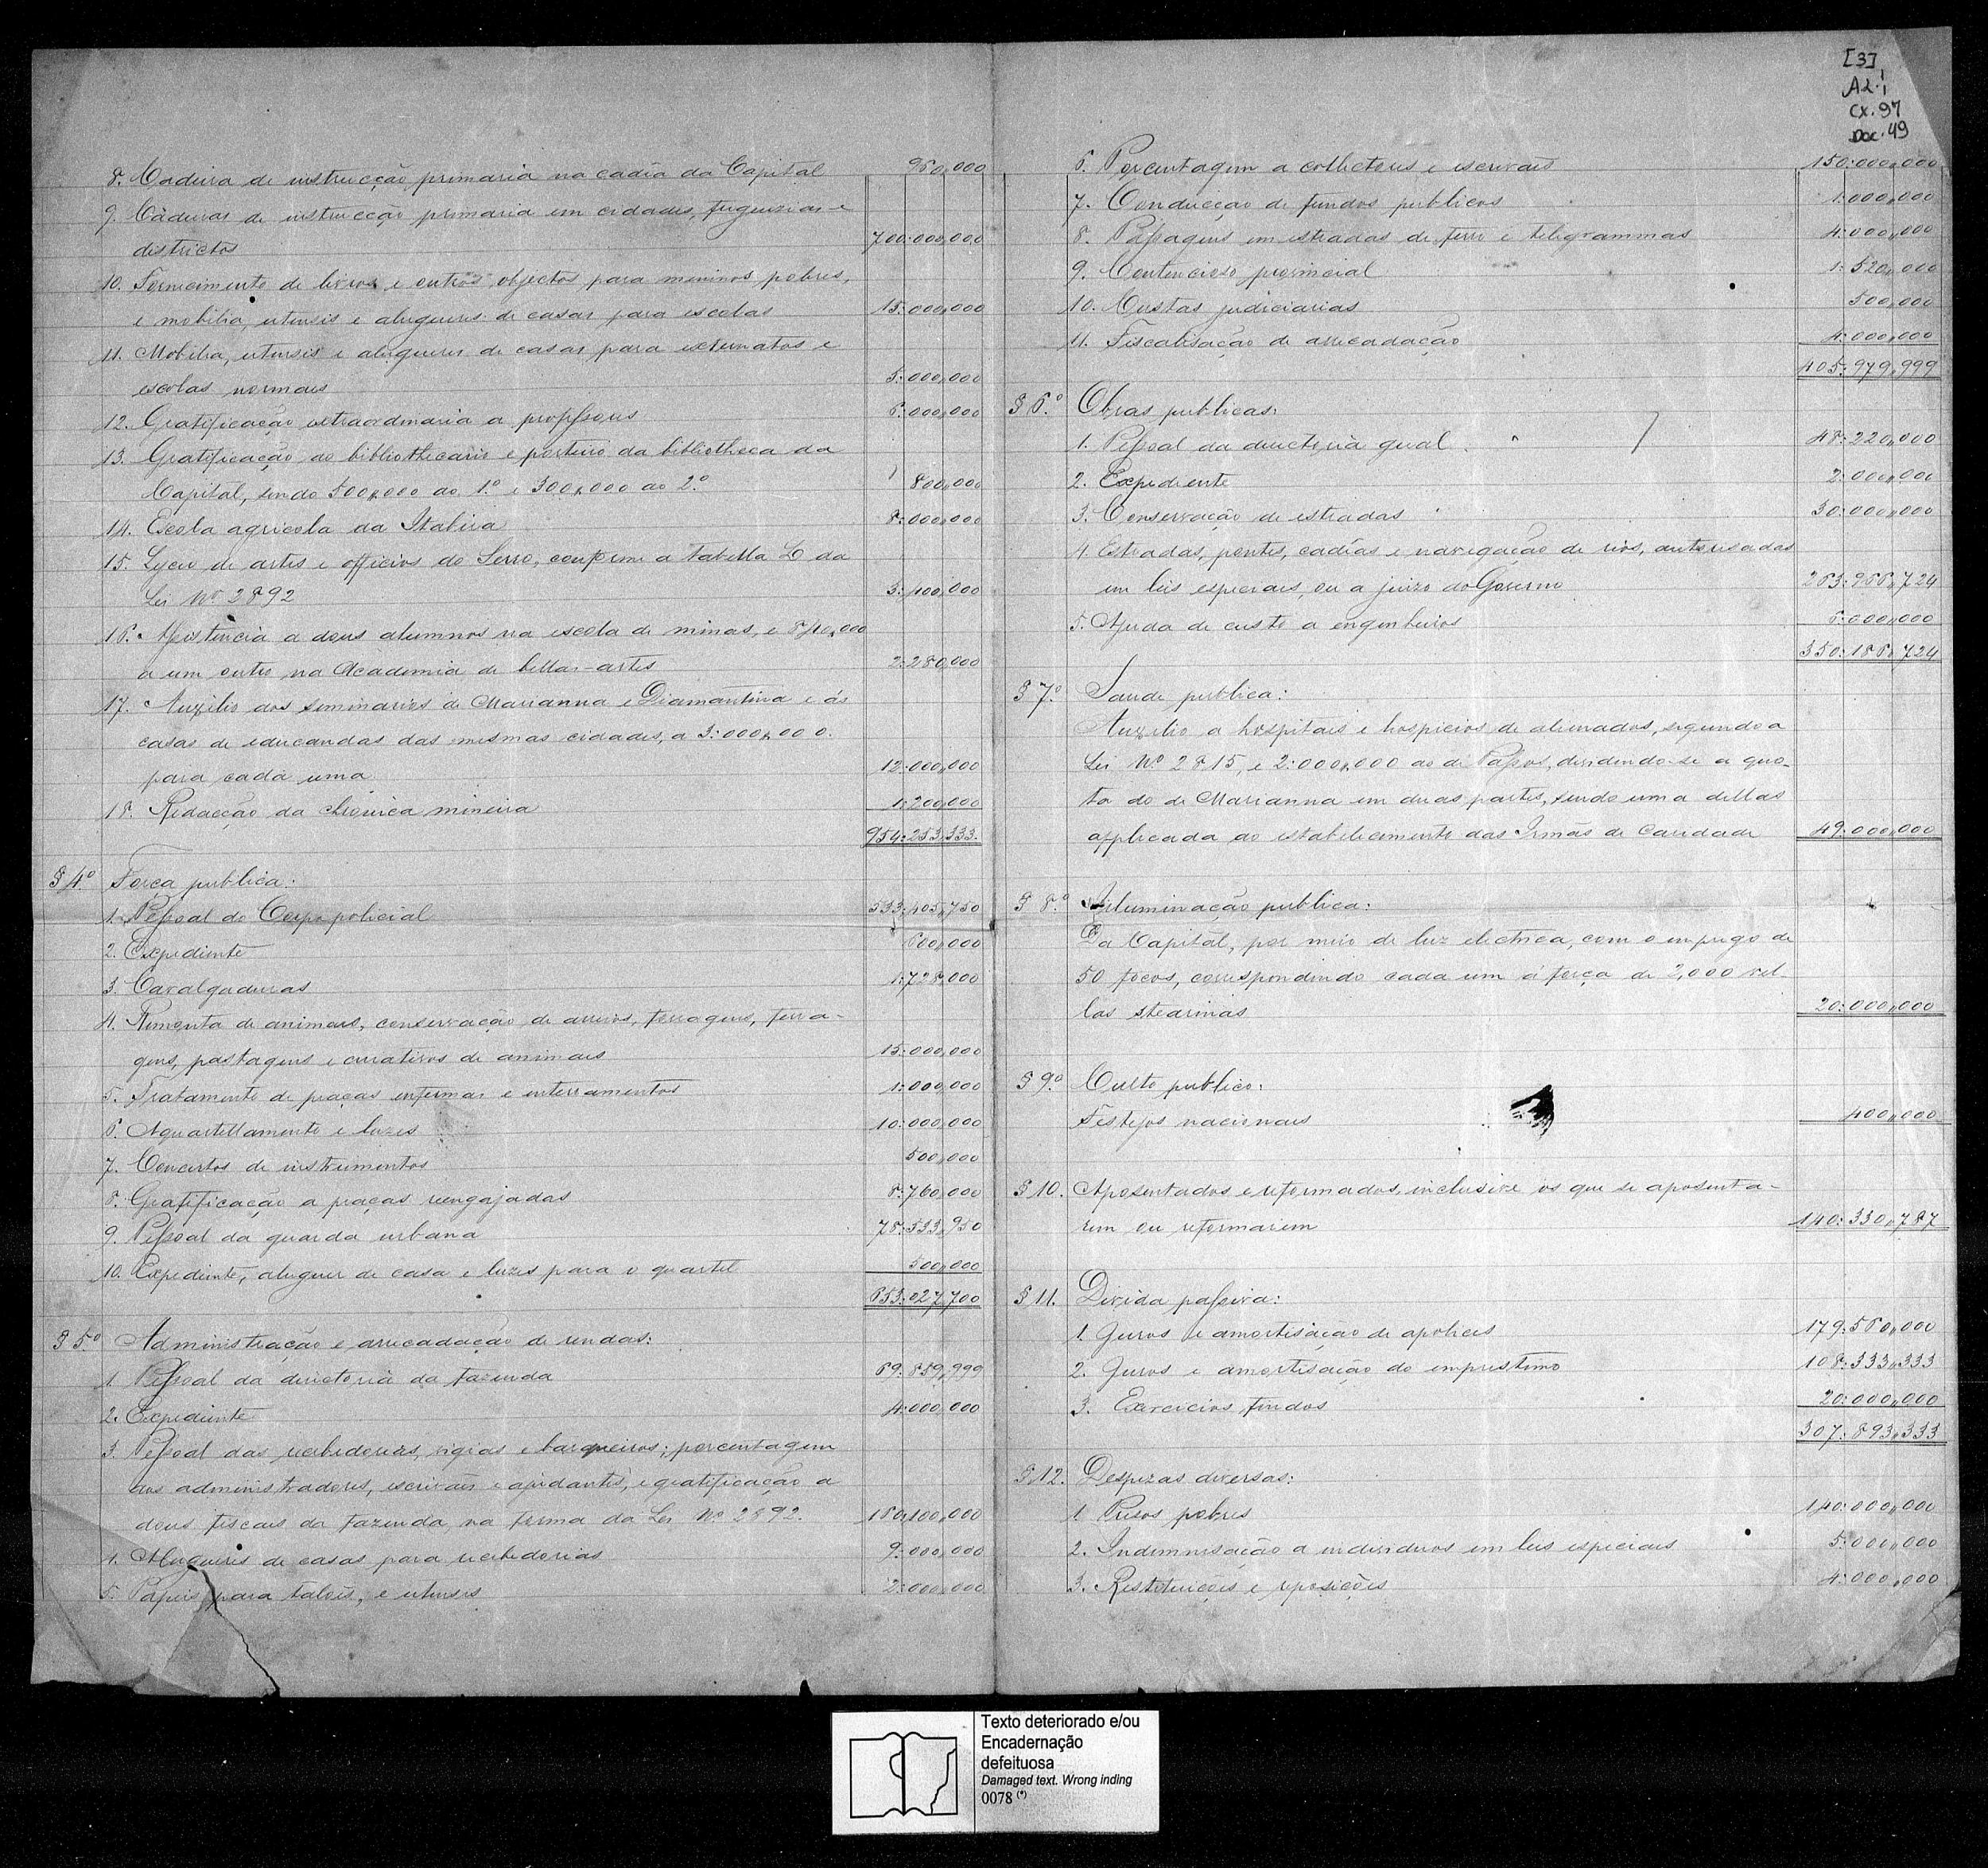 8. Cadeira de instrucção primaria na cadia da Capital 960,000
9. Cadeiras de instrucção primaria em cidades, freguesias e
districtos 700:000,000
10. Fornecimento de livros e outros objectos para meninos pobres,
e mobilia, utensis e alugueres de casas para escolas 15:000,000
11. Mobilia, utensis e alugueres de casas para externatos e
escolas normaes 5:000,000
12. Gratificação extraordinaria a professores 6:000,000
13. Gratificação ao bibliothecario e porteiro da bibliotheca da
Capital, sendo 500,000 ao 1.º e 300,000 ao 2.º 800,000
14. Escola agricola da Itabira 8:000,000
15. Lyceu de artes e officios do Serro, conforme a tabella L da
Lei Nº 2892 3:400,000
16. Assistencia a dous alumnos na escola de minas, e 840,000
a um outro na Academia de bellas-artes 2:280,000
17. Auxilio aos seminarios de Marianna e Diamantina e ás
casas de educandas das mesmas cidades, a 3:000,000.
para cada uma 12:000,000
18. Redacção da chronica mineira 1:200,000
954:253,333.
§ 4º Força publica:
1. Pessoal do Corpo policial 533:405,750
2. Expediente 600,000
3. Cavalgaduras 1:728,000
4. Remonta de animaes, conservação de arreios, forragens, ferra-
gens, pastagens e curativos de animaes 15:000,000
5. Tratamento de praças enfermas e enterramentos 1:000,000
6. Aquartellamento e luzes 10:000,000
7. Concertos de instrumentos 500,000
8. Gratificação a praças reengajadas 8:760,000
9. Pessoal da guarda urbana 78:533,950
10. Expediente, aluguer de casa e luzes para o quartel 500,000
653:027,700
§ 5º Administração e arrecadação de rendas:
1. Pessoal da directoria da fazenda 69:859,999
2. Expediente 4:000,000
3. Pessoal das recebedorias, vigias e barqueiros; porcentagem
aos administradores, escrivães e ajudantes, e gratificação a
dous fiscaes da fazenda na forma da Lei Nº 2892. 160:100,000
4. Alugueres de casas para recebedorias 9:000,000
5. Papeis para talões, e utensis 2:000,000
[3]
A2.i
CX.97
Doc.49
6. Porcentagem a collectores e escrivães 150:000,000
7. Conducção de fundos publicos 1:000,000
8. Passagens em estradas de ferro e telegrammas 4:000,000
9. Contencioso provincial 1:520,000
10. Custas judiciarias 500,000
11. Fiscalisação de arrecadação 4:000,000
405:979,999
§ 6º Obras publicas:
1. Pessoal da directoria geral. 48:220,000
2. Expediente 2:000,000
3. Conservação de estradas 30:000,000
4. Estradas, pontes, cadias e navegação de rios, autorisadas
em leis especiaes, ou a juizo do Governo 263:966,724
5. Ajuda de custo a engenheiros 6:000,000
350:186,724
§ 7º Saude publica:
Auxilio a hospitaes e hospicios de alienados, segundo a
Lei Nº 2815, e 2:000,000 ao de Passos, dividindo-se a quo-
ta do de Marianna em duas partes, sendo uma dellas
applicada ao estabelecimento das Irmãs de Caridade 49:000,000
§ 8º Illuminação publica:
Da Capital, por meio de luz electrica, com o emprego de
50 focos, correspondendo cada um á força de 2,000 vel-
las stearinas 20:000,000
§ 9º Culto publico:
Festejos nacionaes 400,000
§ 10. Aposentados e reformados, inclusive os que se aposenta-
rem ou reformarem 140:330,787
§ 11. Divida passiva:
1. Juros e amortisação de apolices 179:560,000
2. Juros e amortisação do emprestimo 108:333,333
3. Exercicios findos 20:000,000
307:893,333
§ 12. Despezas diversas:
1. Presos pobres 140:000,000
2. Indemnisação a individuos em leis especiaes 5:000,000
3. Restituições e reposições 4:000,000
Texto deteriorado e/ou
Encadernação
defeituosa
Damaged text. Wrong inding
0078 (*)